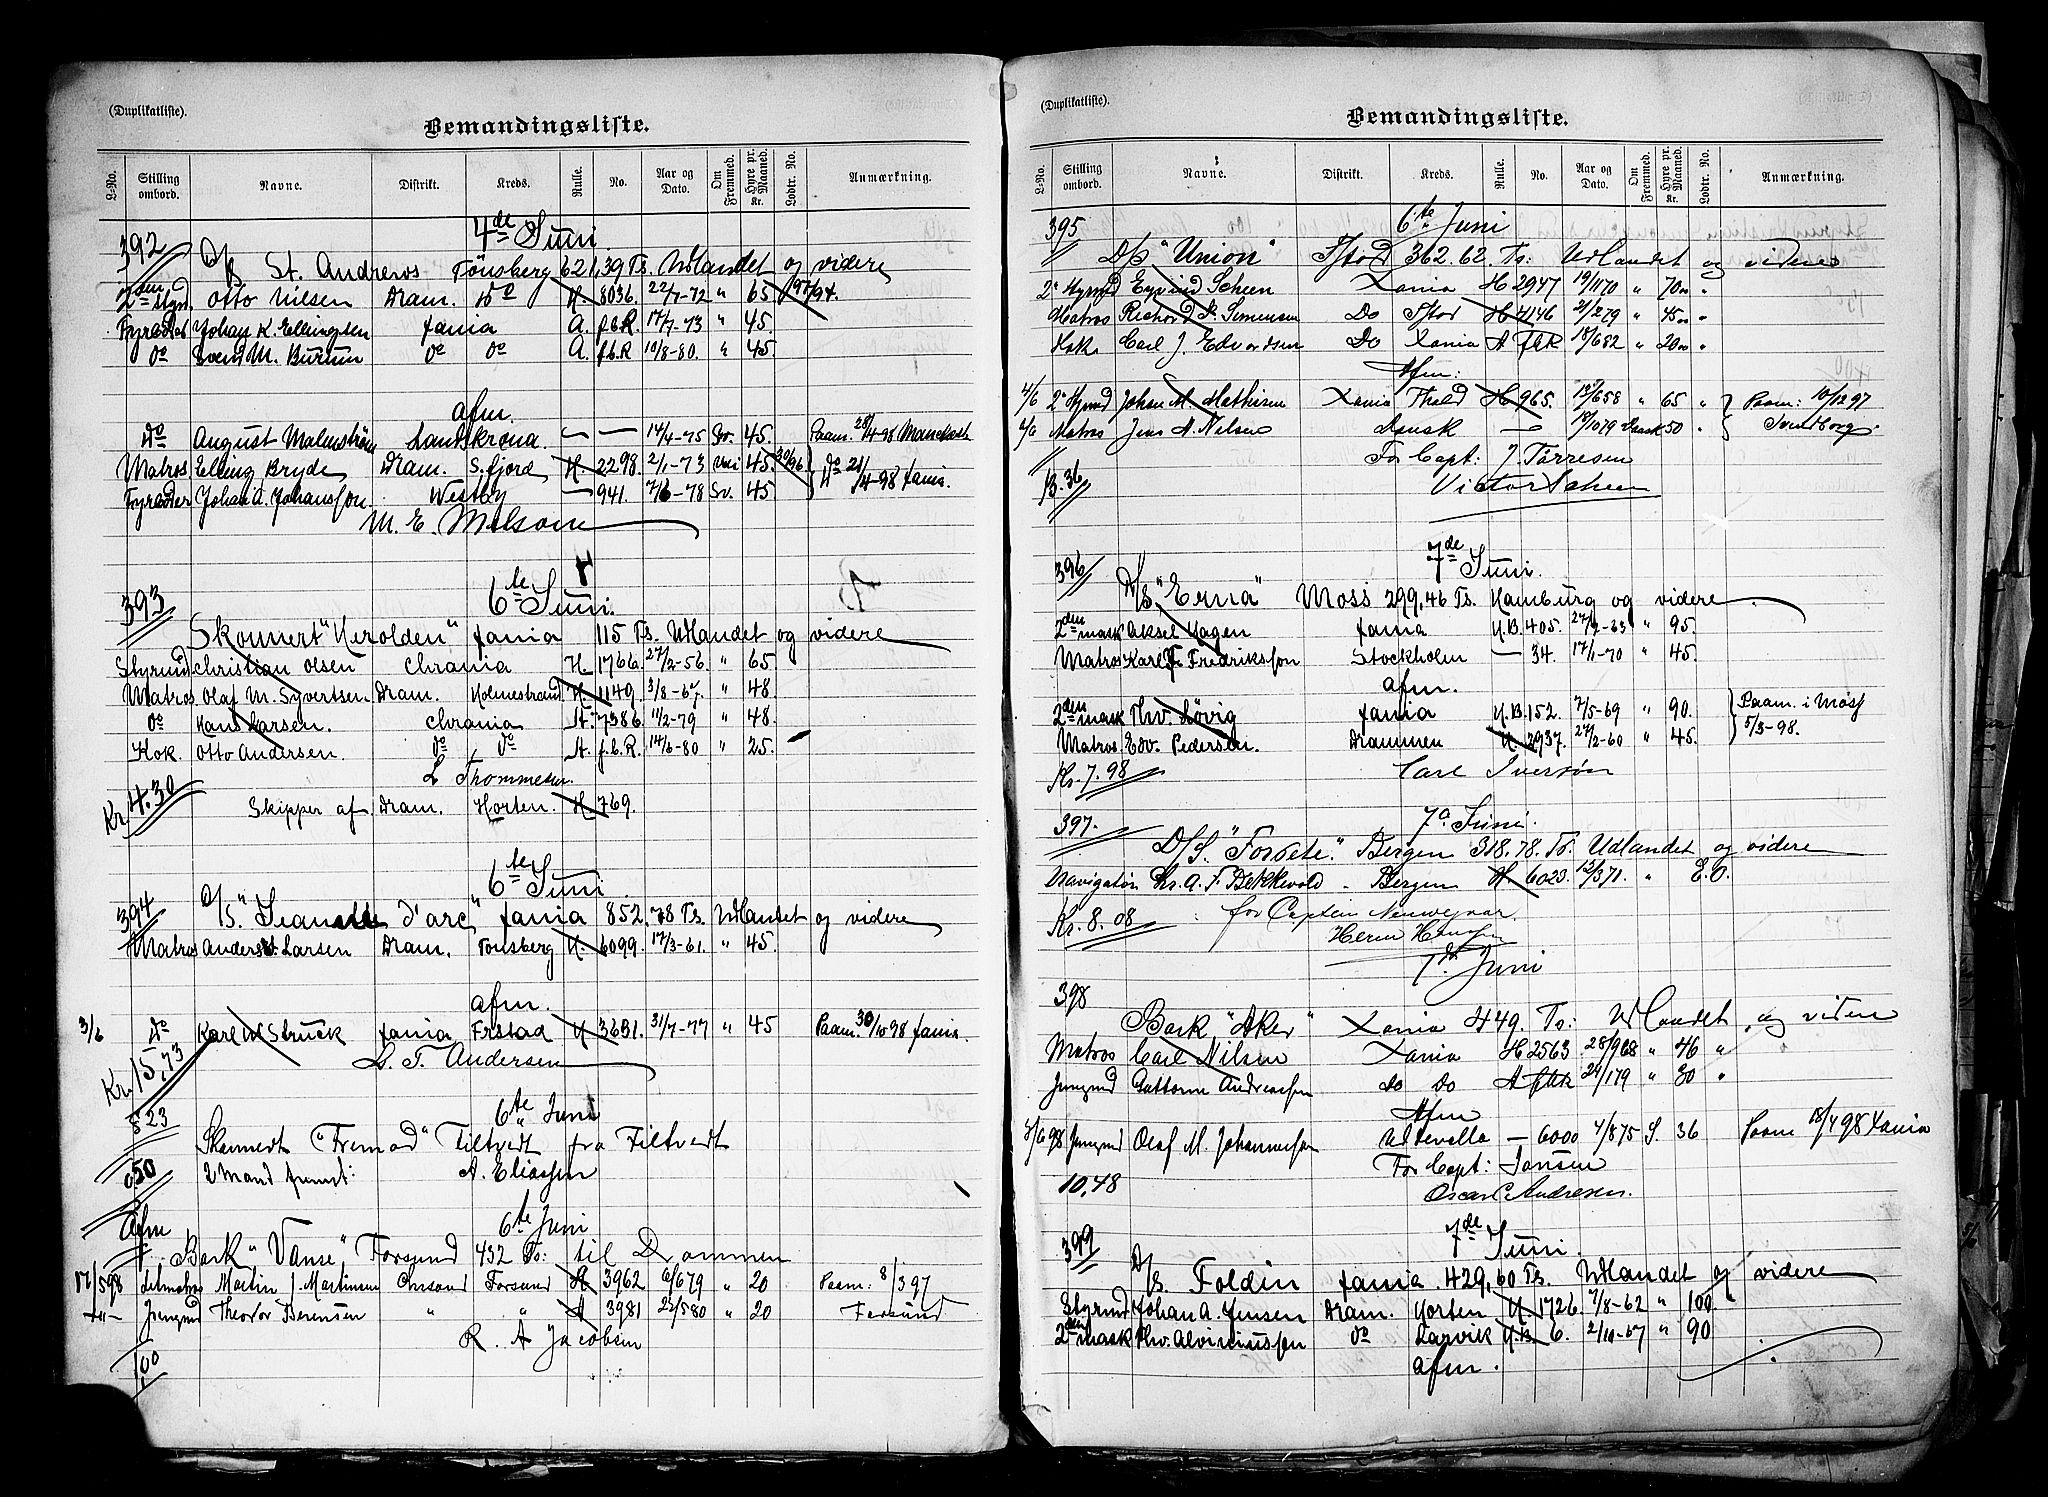 (Duplikatliste).
Bemandingsliste.
L-No. Stilling ombord. Navne. Distrikt. Kreds. Rulle. No. Aar og Dato. Om Fremmed. Hyre pr. Maaned. Kr. Lodtr. No. Anmærkning.
392 4de Juni.
D/S St. Andrews Tönsberg 621,39 Ts. Udlandet og videre
2den Styrd. Otto Nilsen Dram. do H. 8036. 22/7-72 " 65 97/94.
Fyrböder Johan K. Ellingsen Xania A. f.b.R. 17/7-73 " 45.
do Svend M. do do A. f.b.R. 10/8-80. " 45.
afm.
do August Malmström Landskrona. — — 14/4-75 Sv. 45. Paam. 28/4-98
Matros. Elling Bryde Dram. S.fjord H. 2298. 2/1-73 45. 30/96 do 21/4-98 Xania.
Fyrböder Johan A. Johansson. Westby — 941. 7/6-78 Sv. 45
M. E. Melsom
393 6te Juni.
Skonnert "Herolden" Xania 115 Ts. Udlandet og videre
Styrmd Christian Olsen Chrania H. 1766. 27/2-56. " 65
Matros Olaf M. Syvertsen Dram. Holmestrand H. 1149. 3/8-67. " 48.
do Hans Larsen. Chrania A. 7386. 11/2-79 " 48.
Kok. Otto Andersen. do do A. f.b.R. 14/6-80 " 25.
L Thommesen
Kr. 4.30 Skipper af Dram. Horten. H. 769.
394 6te Juni
D/S "Jeanette d'arc" Xania 852,78 Ts. Udlandet og videre
Matros Anders A. Larsen Dram. Tönsberg H. 6099. 17/3-61. " 45.
afm.
3/6 do Karl W. Struck Xania Frstad H 3631. 31/7-77 " 45 Paam. 30/10 98 Xania.
Kr. 15,73 L. T. Andersen
6te Juni
823 Skonnert "Fremad" Filtvedt fra Filtvedt
0.50 2 Mand fremst: A. Eliassen
Afm 6te Juni
Bark "Vanse" Farsund 432 Ts: til Drammen
17/5 98 Letmatros Martin J. Martinsen Chrsand Farsund A 3962 6/6 79 " 20 Paam: 8/3 97
—"— Jungmd Theodor Berensen " " A 3981 23/5 80 " 20 Farsund
R. A Jacobsen
1,00
(Duplikatliste).
Bemandingsliste.
L-No. Stilling ombord. Navne. Distrikt. Kreds. Rulle. No. Aar og Dato. Om Fremmed. Hyre pr. Maaned. Kr. Lodtr. No. Anmærkning.
395 6te Juni
D/S "Union" Fstad 362.62. Ts: Udlandet og videre
2. Styrmd Eyvind Scheen Xania H 2947 19/11 70 " 70 00 "
Matros Richard A. Simensen Do Fstad H 4146 21/2 79 " 45 00 "
Kok Carl J. Edvardsen Do Xania A fbk 18/6 82 " 20 00 "
Afm:
4/6 2. Styrmd Johan M. Mathisen Xania Thald H 965. 13/6 58 " 65 " Paam: 10/12 97
4/6 Matros Jens A. Nilsen Dansk — 18/10 79 Dansk 50 " Svendborg
For Capt: J. Tørresen
13.36 Victor Scheen
396 7de Juni.
D/S "Erna" Moss 299,46 Ts. Hamburg og videre.
2den mask Aksel Hagen Xania H.B. 405. 27/2-63 " 95.
Matros Karl F. Fredriksson Stockholm — 34. 17/1-70 " 45.
afm.
2den mask Thv. Lövig Xania H.B. 152. 7/5-69 " 90. Paam. i Moss
Matros Edv. Pedersen. Drammen H. 2937. 27/2-60 " 45. 5/3-98.
Kr. 7.98 Carl Iversøn
397. 7d Juni.
D/S. "Forsete." Bergen 318.78. Ts. Udlandet og videre
Navigatör Kr. A. F. Bekkevold - Bergen H. 6023. 13/3 71. " E.O.
Kr. 8.08 for Captein
Herm Hansen
7de Juni
398
Bark "Aker" Xania 449. Ts: Udlandet og videre
Matros Carl Nilsen Xania H 2563 28/9 68 " 46 "
Jungmd Guttorm Andreassen Do Do A fbk 24/1 79 " 30 "
Afm
3/6 98 Jungmd Olaf M. Johannesson Udevalla — 6000 4/8 75 S. 36 Paam 18/4 98 Xania
For Capt: Jansen
10,48 Oscar C. Andresen.
399 7de Juni.
D/S. Foldin Xania. 429,60 Ts. Udlandet og videre
Styrmd Johan A. Jensen Dram. Horten H. 1726. 7/8-62 " 100
2den mask Thv. Alviniussen do Larvik H.B. 6. 2/10-67 " 90
afm.